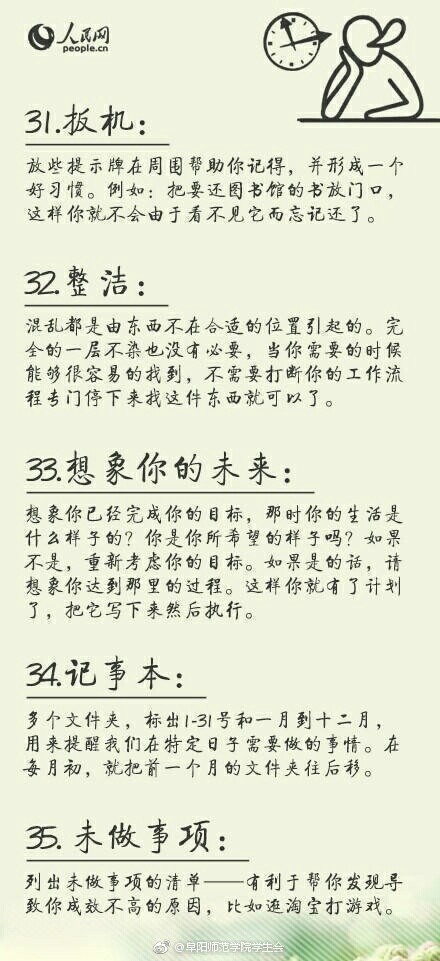 人民网
people.cn
31.扳机：
放些提示牌在周围帮助你记得，并形成一个
好习惯。例如：把要还图书馆的书放门口，
这样你就不会由于看不见它而忘记还了。
32.整洁：
混乱都是由东西不在合适的位置引起的。完
全的一层不染也没有必要，当你需要的时候
能够很容易的找到，不需要打断你的工作流
程专门停下来找这件东西就可以了。
33.想象你的未来：
想象你已经完成你的目标，那时你的生活是
什么样子的？你是你所希望的样子吗？如果
不是，重新考虑你的目标。如果是的话，请
想象你达到那里的过程。这样你就有了计划
了，把它写下来然后执行。
34.记事本：
多个文件夹，标出1-31号和一月到十二月，
用来提醒我们在特定日子需要做的事情。在
每月初，就把前一个月的文件夹往后移。
35.未做事项：
列出未做事项的清单——有利于帮你发现导
致你成效不高的原因，比如逛淘宝打游戏。
@阜阳师范学院学生会